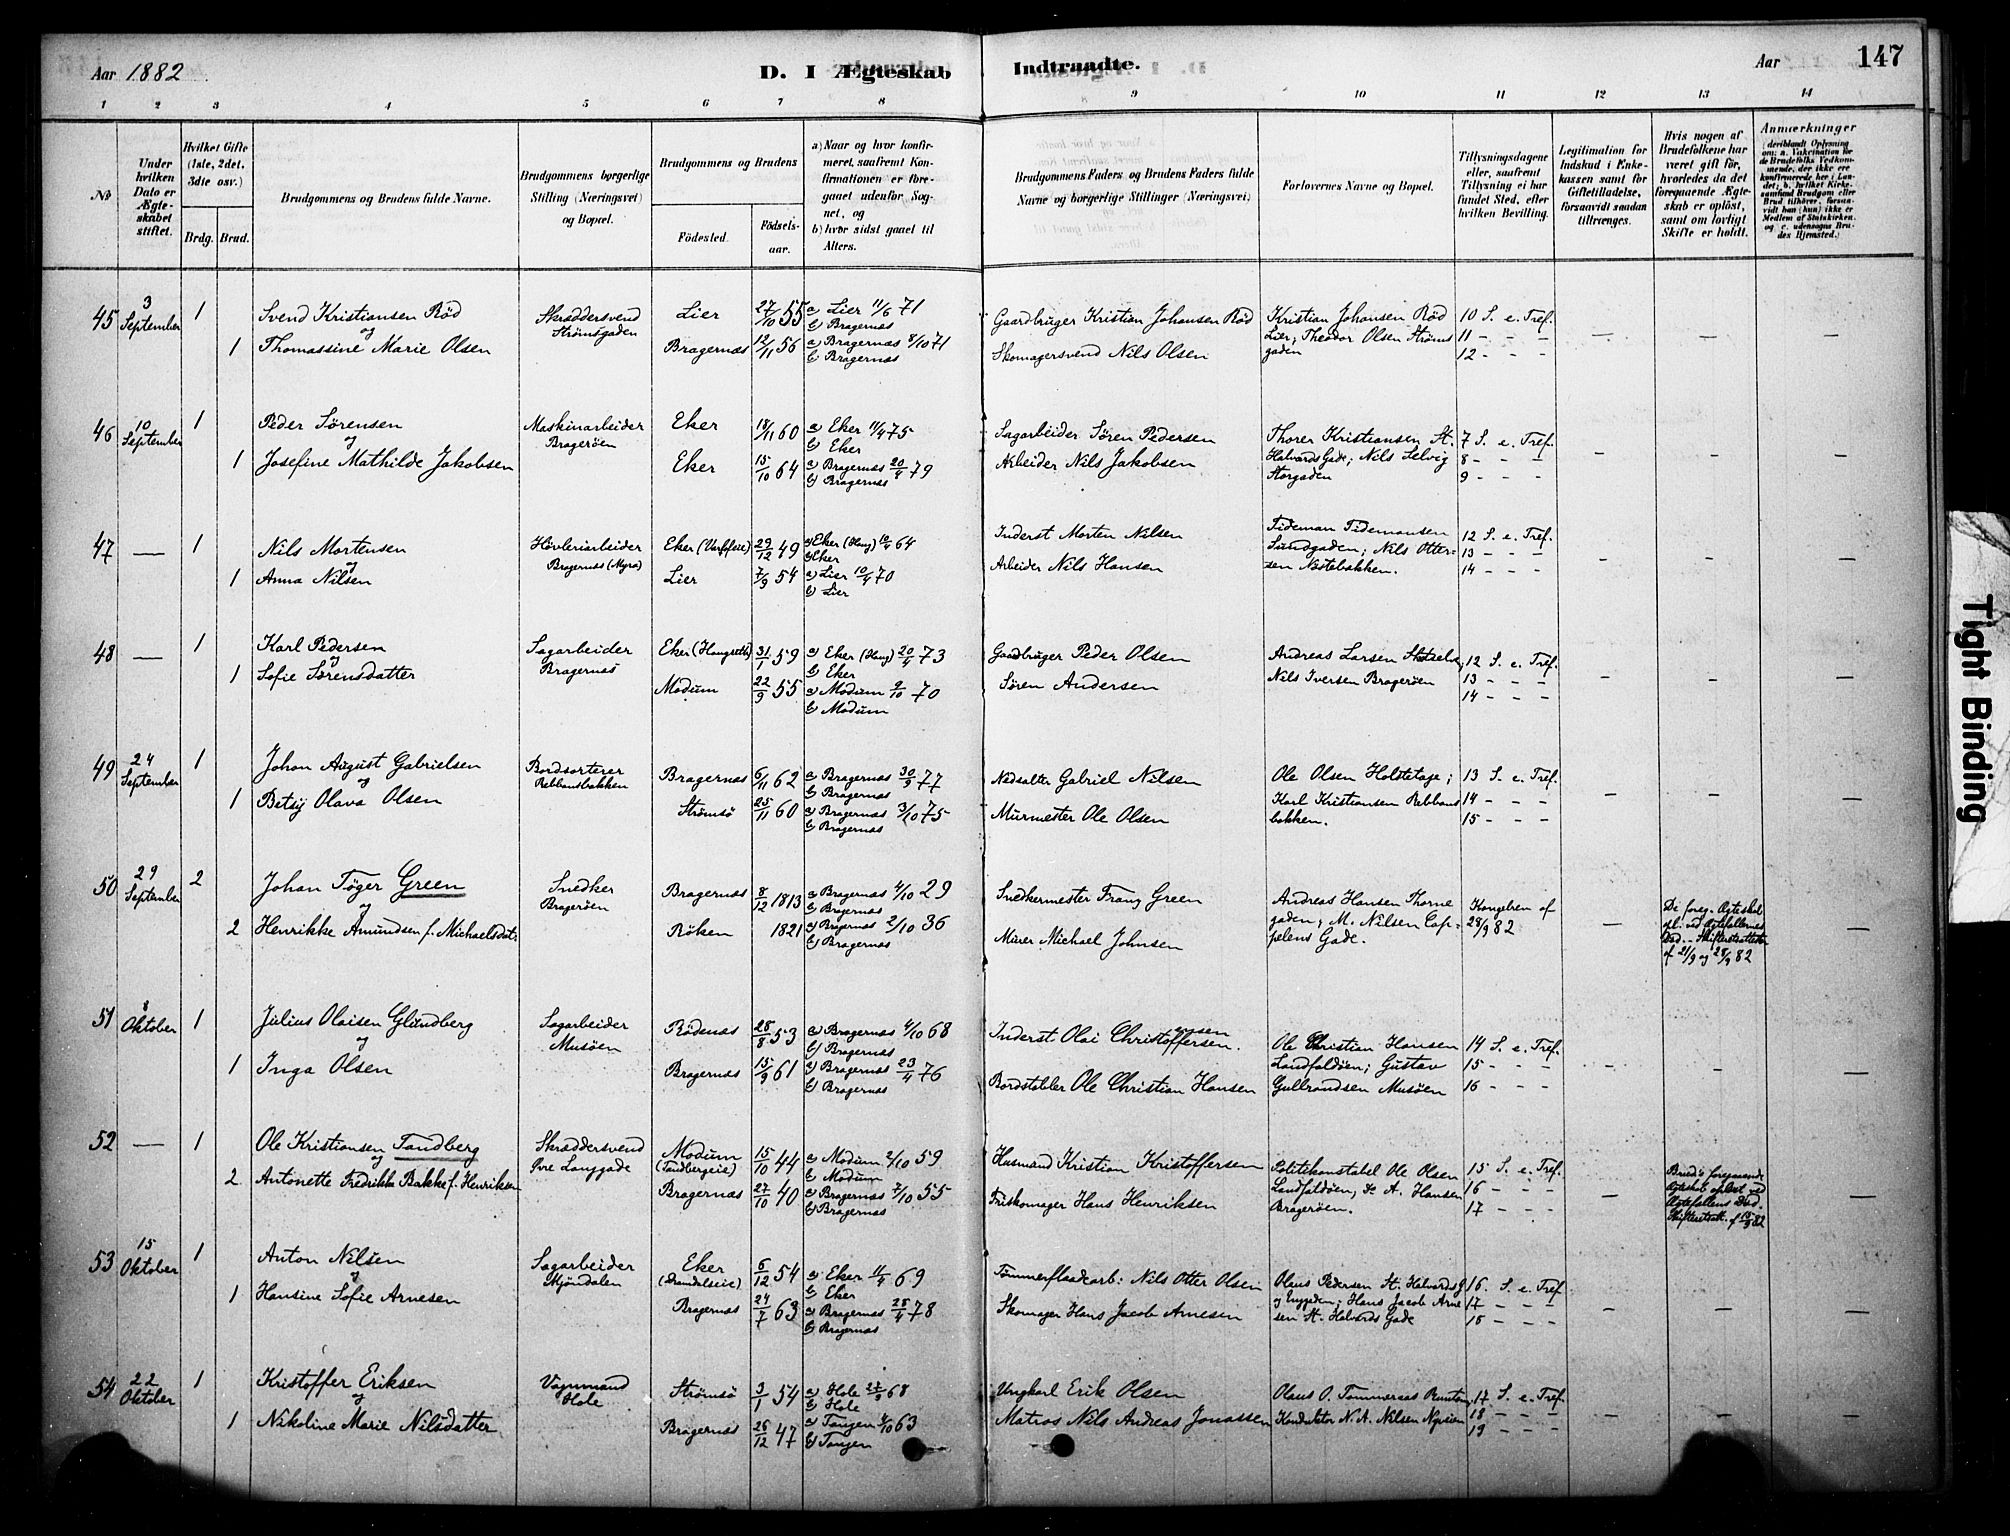 Aar 1882 D. I Ægteskab Indtraadte. Aar 147
1 2 3 4 5 6 7 8 9 10 11 12 13 14
No
Under hvilken Dato er Ægteskabet stiftet.
Hvilket Gifte (1ste, 2det, 3die osv.)
Brdg. Brud.
Brudgommens og Brudens fulde Navne.
Brudgommens borgerlige Stilling (Næringsvei) og Bopæl.
Brudgommens og Brudens
Fødested. Fødselsaar.
a) Naar og hvor konfirmeret, saafremt Konfirmationen er foregaaet udenfor Sognet, og
b) hvor sidst gaaet til Alters.
Brudgommens Faders og Brudens Faders fulde Navne og borgerlige Stillinger (Næringsvei)
Forlovernes Navne og Bopæl.
Tillysningsdagene eller, saafremt Tillysning ei har fundet Sted, efter hvilken Bevilling.
Legitimation for Indskud i Enkekassen samt for Giftetilladelse, forsaavidt saadan tiltrænges.
Hvis nogen af Brudefolkene har været gift før, hvorledes da det foregaaende Ægteskab er opløst, samt om lovligt Skifte er holdt.
Anmærkninger
(deriblandt Oplysning om: a. Vakcination for de Brudefolks Vedkommende, der ikke ere konfirmerede her i Landet; b. hvilket Kirkesamfund Brudgom eller Brud tilhører, forsaavidt han (hun) ikke er Medlem af Statskirken, og c. udensogns Brudes Hjemsted.)
45 3 September 1 Svend Kristiansen Rød Skræddersvend Strømsgaden Lier 27/10 55 a) Lier 11/6 71 b) Bragernæs Gaardbruger Kristian Johansen Rød Kristian Johansen Rød 10 S. e. Tref.
og
1 Thomassine Marie Olsen Bragernæs 12/11 56 a) Bragernæs 8/10 71 b) Bragernæs Skomagersvend Nils Olsen Lier; Theodor Olsen Strømsgaden 11 - - - 12 - - -
46 10 September 1 Peder Sørensen Maskinarbeider Bragerøen Eker 18/11 60 a) Eker 11/4 75 b) Eker Sagarbeider Søren Pedersen Thorer Kristiansen St. 7 S. e. Tref.
og
1 Josefine Mathilde Jakobsen Eker 15/10 64 a) Bragernæs 20/4 79 b) Bragernæs Arbeider Nils Jakobsen Halvards Gade; Nils Selvig Storgaden 8 - - - 9 - - -
47 — 1 Nils Mortensen Høvleriarbeider Bragernæs (Myra) Eker 29/12 49 a) Eker (Haug) 10/4 64 b) Eker Inderst Morten Nilsen Tideman Tidemansen 12 S. e. Tref.
og
1 Anna Nilsen Lier 7/9 54 a) Lier 10/4 70 b) Lier Arbeider Nils Hansen Sundgaden; Nils Ottersen Næstebakken. 13 - - - 14 - - -
48 — 1 Karl Pedersen Sagarbeider Bragernæs Eker 31/1 59 a) Eker (Haug) 20/4 73 b) Eker Gaardbruger Peder Olsen Andreas Larsen 12 S. e. Tref.
og
1 Sofie Sørensdatter Modum 22/9 55 a) Modum 9/10 70 b) Modum Søren Andersen Nils Iversen Bragerøen 13 - - - 14 - - -
49 24 September 1 Johan August Gabrielsen Bordsorterer Rebbansbakken Bragernæs 6/11 62 a) Bragernæs 30/9 77 b) Bragernæs Nedsalter Gabriel Nilsen Ole Olsen Holdtetage; 13 S. e. Tref.
og
1 Betsy Olava Olsen Strømsø 25/11 60 a) Bragernæs 3/10 75 b) Bragernæs Murmester Ole Olsen Karl Kristiansen Rebbansbakken. 14 - - - 15 - - -
50 29 September 2 Johan Tøger Green Snedker Bragerøen Bragernæs 8/12 1813 a) Bragernæs 4/10 29 b) Bragernæs Snedkermester Franz Green Andreas Hansen Thornegaden; M. Nilsen Cappelens Gade. Kongebrev af 28/9 82
og
2 Henrikke Amundsen f. Michaelsdat. Røken 1821 a) Bragernæs 2/10 36 b) Bragernæs Murer Michael Johnsen
De foreg. Ægteskab opl. ved Ægtefællernes Død. Skifteretsattester af 21/9 og 28/9 82
51 8 Oktober 1 Julius Olaisen Glundberg Sagarbeider Musøen Rødenæs 28/8 53 a) Bragernæs 4/10 68 b) Bragernæs Inderst Olai Christoffersen. Ole Christian Hansen 14 S. e. Tref.
og
1 Inga Olsen Bragernæs 15/9 61 a) Bragernæs 23/4 76 b) Bragernæs Bordstabler Ole Christian Hansen Landfaldøen; Gustav Gulbrandsen Musøen 15 - - - 16 - - -
52 — 1 Ole Kristiansen Tandberg Skræddersvend Øvre Langgade Modum (Tandbergeie) 15/10 44 a) Modum 2/10 59 b) Modum Husmand Kristian Kristoffersen Politikonstabel Ole Olsen 15 S. e. Tref.
og
2 Antonette Fredrikke Bakke f. Henriksen Bragernæs 27/10 40 a) Bragernæs 7/10 55 b) Bragernæs Friskomager Hans Henriksen Landfaldøen; A. Hansen Bragerøen. 16 - - - 17 - - -
Bruds foregaaende Ægteskab opløst ved Ægtefællens Død. Skifteretsatt. af 15/9 82
53 15 Oktober 1 Anton Nilsen Sagarbeider Mjøndalen Eker 6/12 54 a) Eker 11/4 69 b) Eker Tømmerflaadearb: Nils Otter Olsen Olaus Pedersen St. Halvards G. 16. S. e. Tref.
og
1 Hansine Sofie Arnesen Bragernæs 24/7 63 a) Bragernæs 28/4 78 b) Bragernæs Skomager Hans Jacob Arnesen og Enggaden; Hans Jacob Arnesen St. Halvards Gade 17 - - - 15 - - -
54 22 Oktober 1 Kristoffer Eriksen Vognmand Hole Strømsø 3/1 54 a) Hole 27/9 68 b) Hole Ungkarl Erik Olsen Olaus O. Tommeraas 17. S. e. Tref.
og
1 Nikoline Marie Nilsdatter Bragernæs 26/12 47 a) Tangen 4/10 63 b) Tangen Matros Nils Andreas Jonassen Konduktør N. A. Nilsen Nyveien 18 - - - 19 - - -
Tight Binding